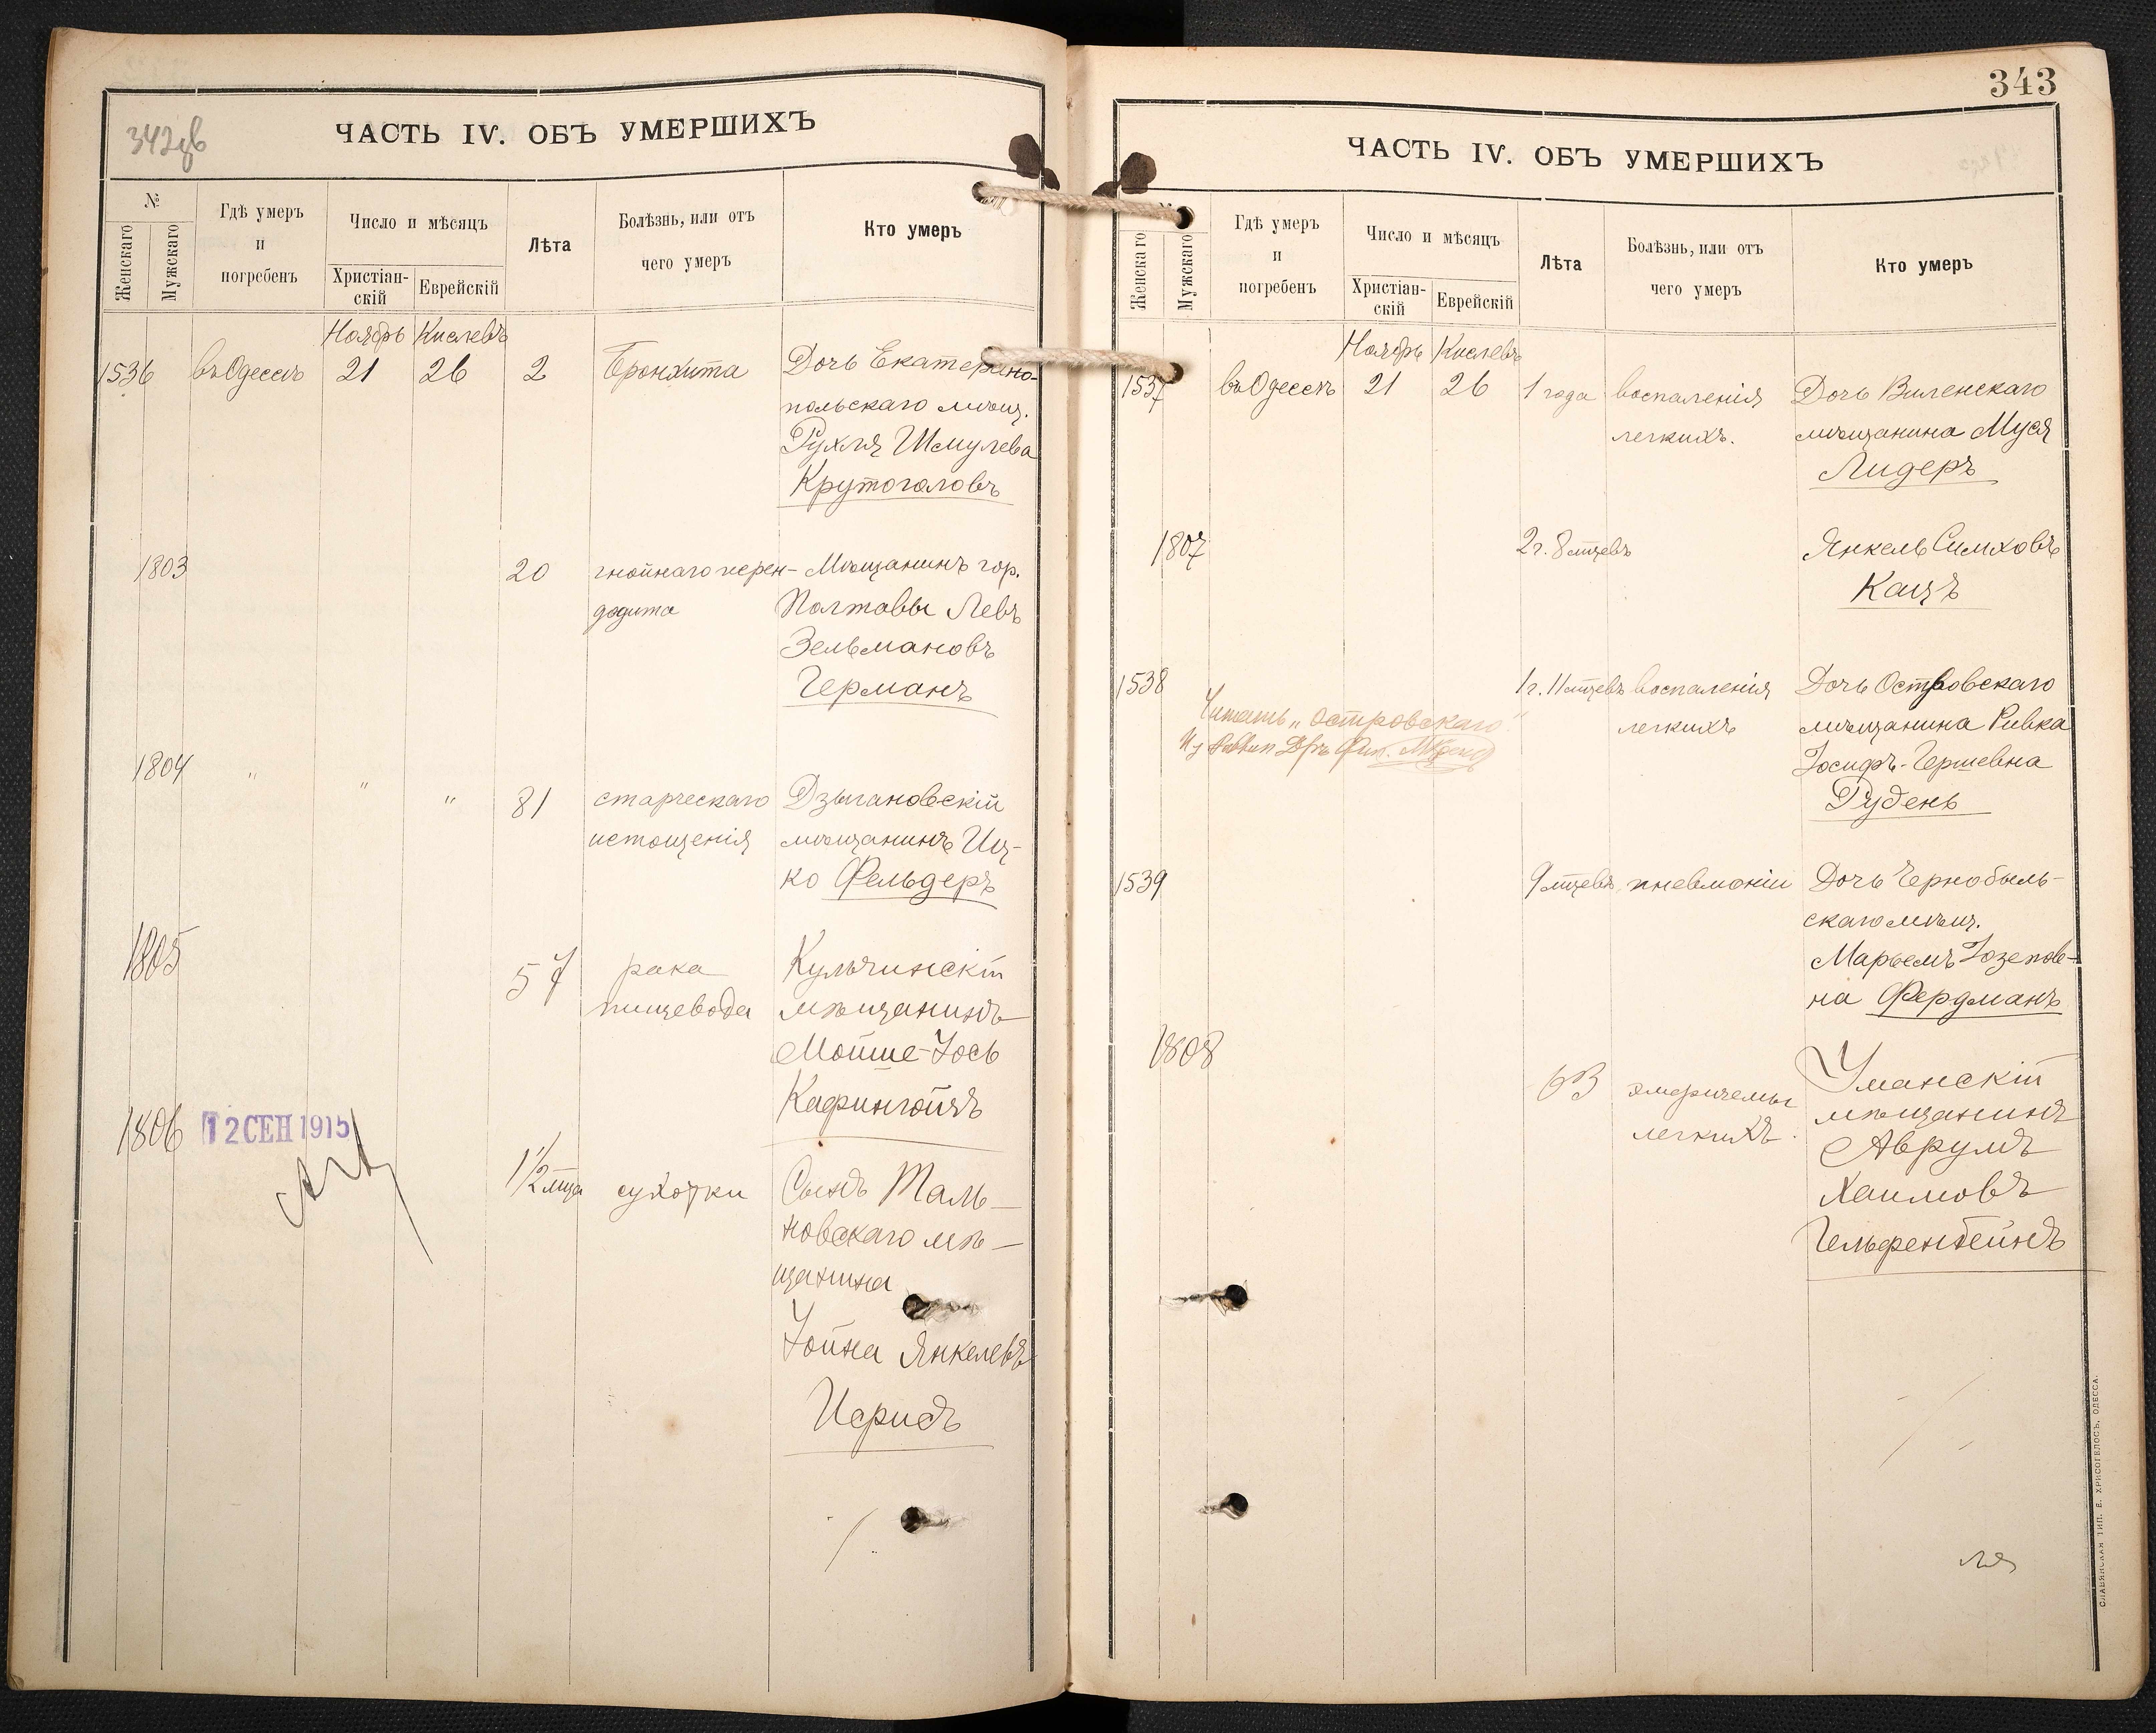 ЧАСТЬ IV. ОБЪ УМЕРШИХЪ
№
Женскаго
Мужскаго
Гдѣ умеръ
и
погребенъ
Число и мѣсяцъ
Христіан-
скій
Еврейскій
Лѣта
Болѣзнь, или отъ
чего умеръ
Кто умеръ
Ноябрь Кислевъ
1536 въ Одессѣ 21 26 2 Бронхита Дочь Екатерино-
польскаго мѣщ.
Рухля Шмулева
Крутоголовъ
1803 20 гнойнаго Мѣщанинъ гор.
Полтавы Левъ
Зельмановъ
Германъ
1804 " " " 81 старческаго Дзыгановскій
истощенія мѣщанинъ Иц-
ко Фельдеръ
1805 57 рака Кульчинскій
пищевода мѣщанинъ
Мойше-Іось
1806 12 СЕН 1915
1 1/2 мца сухотки Сынъ Таль-
новскаго мѣ-
щанина
Іойна Янкелевъ
343
ЧАСТЬ IV. ОБЪ УМЕРШИХЪ
Женскаго
Мужскаго
Гдѣ умеръ
и
погребенъ
Число и мѣсяцъ
Христіан-
скій
Еврейскій
Лѣта
Болѣзнь, или отъ
чего умеръ
Кто умеръ
Ноябрь Кислевъ
1537 въ Одессѣ 21 26 1 года воспаленія Дочь Виленскаго
легкихъ. мѣщанина Муся
Лидеръ
1807 2 г. 8 мцевъ Янкель Симховъ
Кацъ
1538 1 г. 11 мцевъ воспаленія Дочь Островскаго
легкихъ мѣщанина Ривка
Читать „Островскаго"
Іосифъ-Гершевна
Рудень
1539 9 мцевъ пневмоніи Дочь Чернобыль-
скаго мѣщ.
Марьемъ Іозепов-
на Фердманъ
1808 63 эмфиземы Уманскій
легкихъ. мѣщанинъ
Аврумъ
Хаимовъ
Гельфенбейнъ
СЛАВЯНСКАЯ ТИП. Е. ХРИСОГЕЛОСЪ, ОДЕССА.